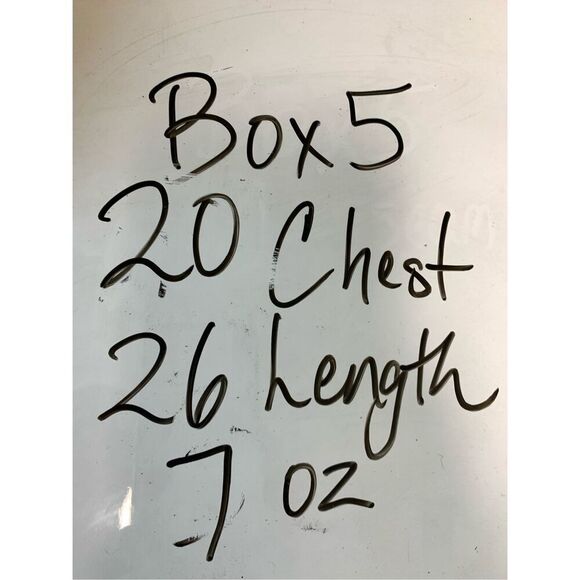 Box 5
20 Chest
26 Length
7 oz